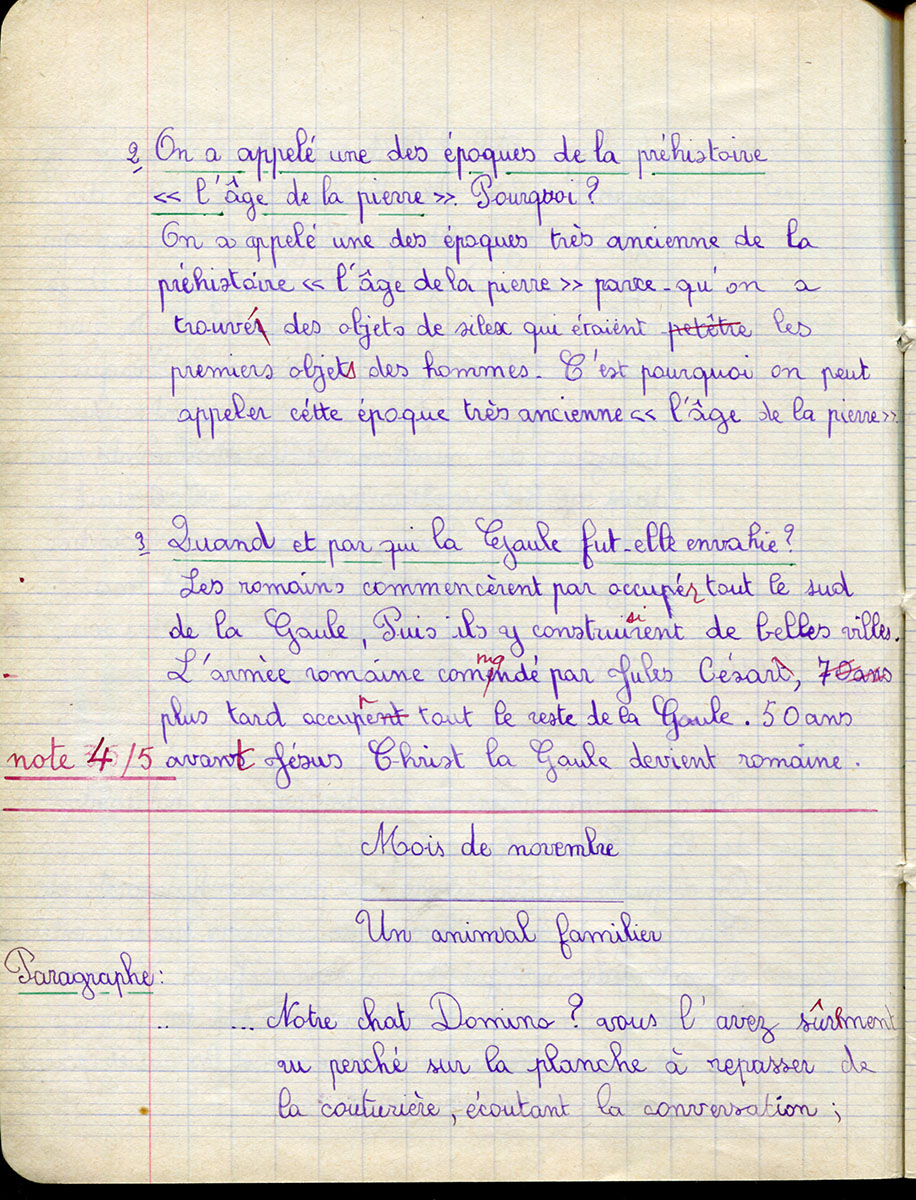 2 On a appelé une des époques de la préhistoire
« l'âge de la pierre ». Pourquoi ?
On a appelé une des époques très ancienne de la
préhistoire « l'âge de la pierre » parce-qu'on a
trouvé des objets de silex qui étaient petêtre les
premiers objets des hommes. C'est pourquoi on peut
appeler cétte époque très ancienne « l'âge de la pierre »
3 Quand et par qui la Gaule fut-elle envahie ?
Les romains commencèrent par occupér tout le sud
de la Gaule, Puis ils y construisirent de belles villes.
L'armèe romaine commandé par Jules César, 70 ans
plus tard accupent tout le reste de la Gaule. 50 ans
note 4/5 avant Jésus Christ la Gaule devient romaine.
Mois de novembre
Un animal familier
Paragraphe :
.. ... Notre chat Domino ? vous l'avez sûrement
vu perché sur la planche à repasser de
la couturière, écoutant la conversation ;